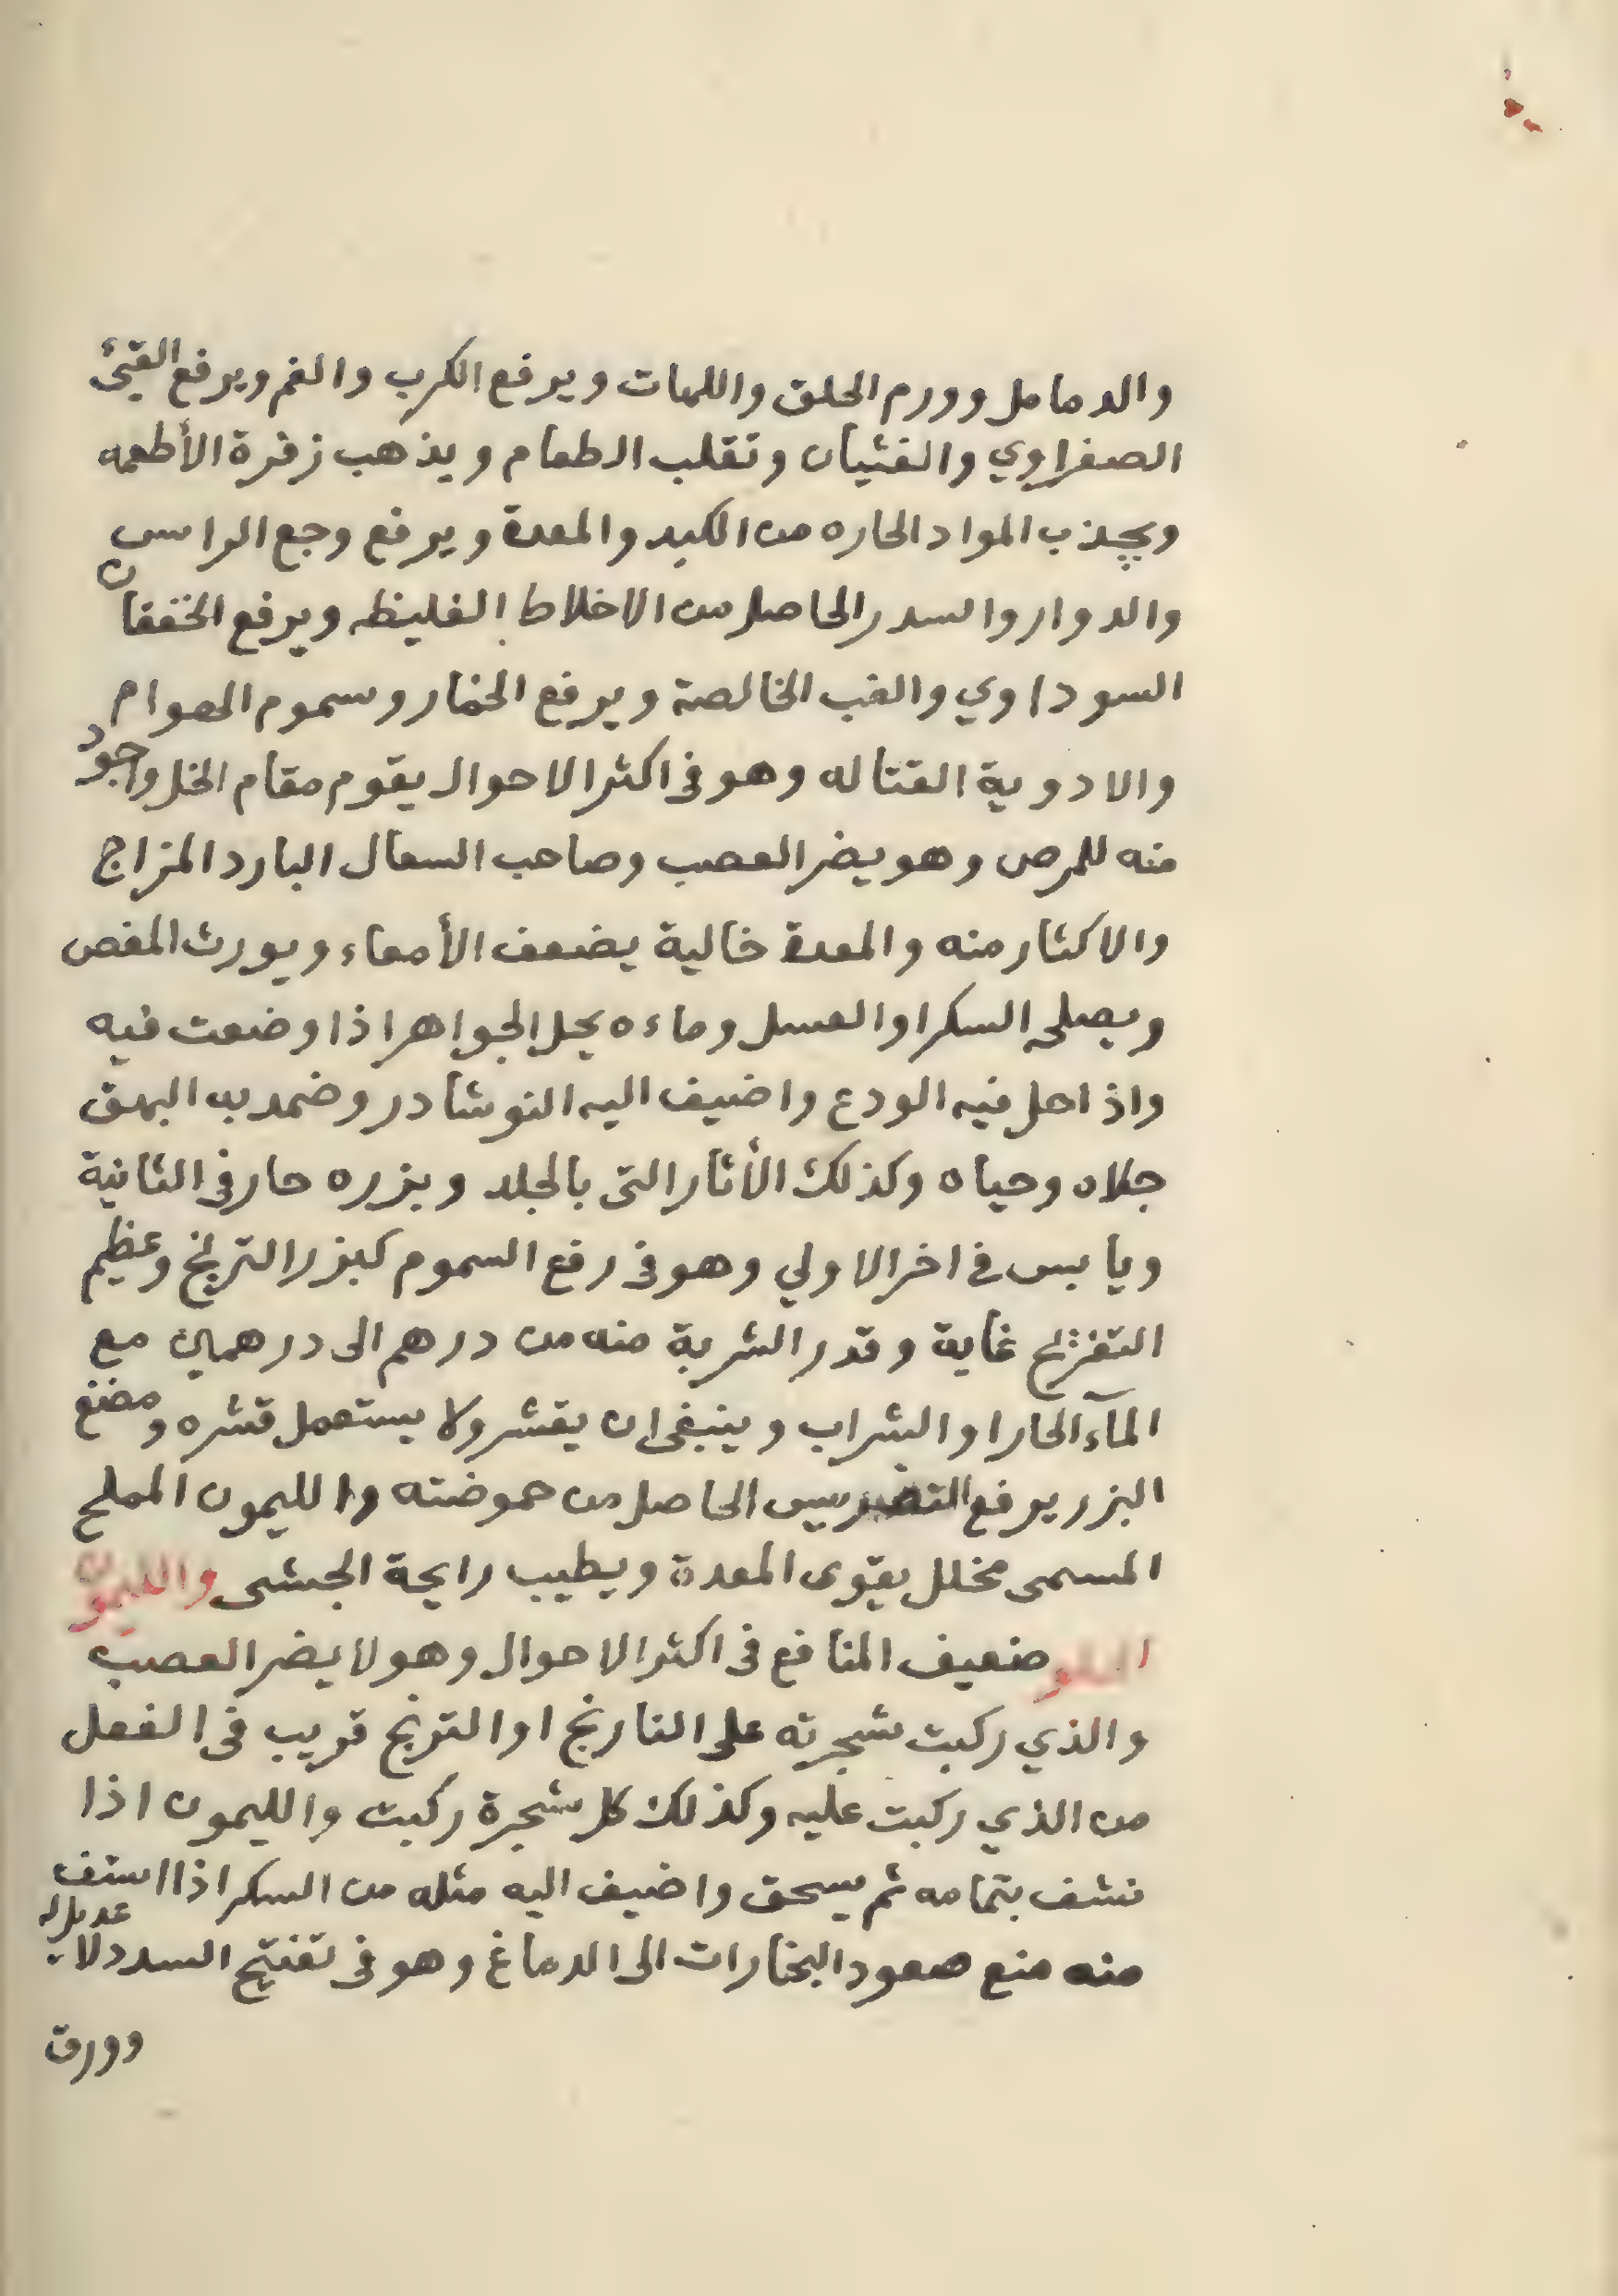 والدمامل وورم الحلق واللهات ويرفع الكرب والغم ويرفع القيئ
الصفراوي والغثيان وتقلب الطعام ويذهب زفرة الأطعمه
ويجذب المواد الحاره من الكبد والمعدة ويرفع وجع الراس
والدوار والسدر الحاصل من الاخلاط الغليظه ويرفع الخفقان
السوداوي والغب الخالصة ويرفع الخمار وسموم الهوام
والادوية القتاله وهو في اكثر الاحوال يقوم مقام الخل واجود
منه للمرص وهو يضر العصب وصاحب السعال البارد المزاج
والاكثار منه والمعدة خالية يضعف الأمعاء ويورث المغص
ويصلحه السكر او العسل وماءه يحل الجواهر اذا وضعت فيه
واذا حل فيه الودع واضيف اليه النوشادر وضمد به البهق
جلاه وحياه وكذلك الأثار التى بالجلد وبزره حار في الثانية
ويابس في اخر الاولي وهو في رفع السموم كبزر الترنج وعظيم
التفريح غاية وقدر الشربة منه من درهم الى درهمين مع
المآء الحار او الشراب وينبغى ان يقشر ولا يستعمل قشره ومضغ
البزر يرفع التضريس الحاصل من حموضته والليمون المملح
المسمى مخلل يقوى المعدة ويطيب رايحة الجشى والليمون
الحلو ضعيف المنافع في اكثر الاحوال وهو لا يضر العصب
والذي ركبت شجرته على النارنج او الترنج قريب في الفعل
من الذي ركبت عليه وكذلك كل شجرة ركبت والليمون اذا
نشف بتمامه ثم يسحق واضيف اليه مثله من السكر اذا استف
منه منع صعود البخارات الى الدماغ وهو في تفتيح السدد لا عديل له
وورق